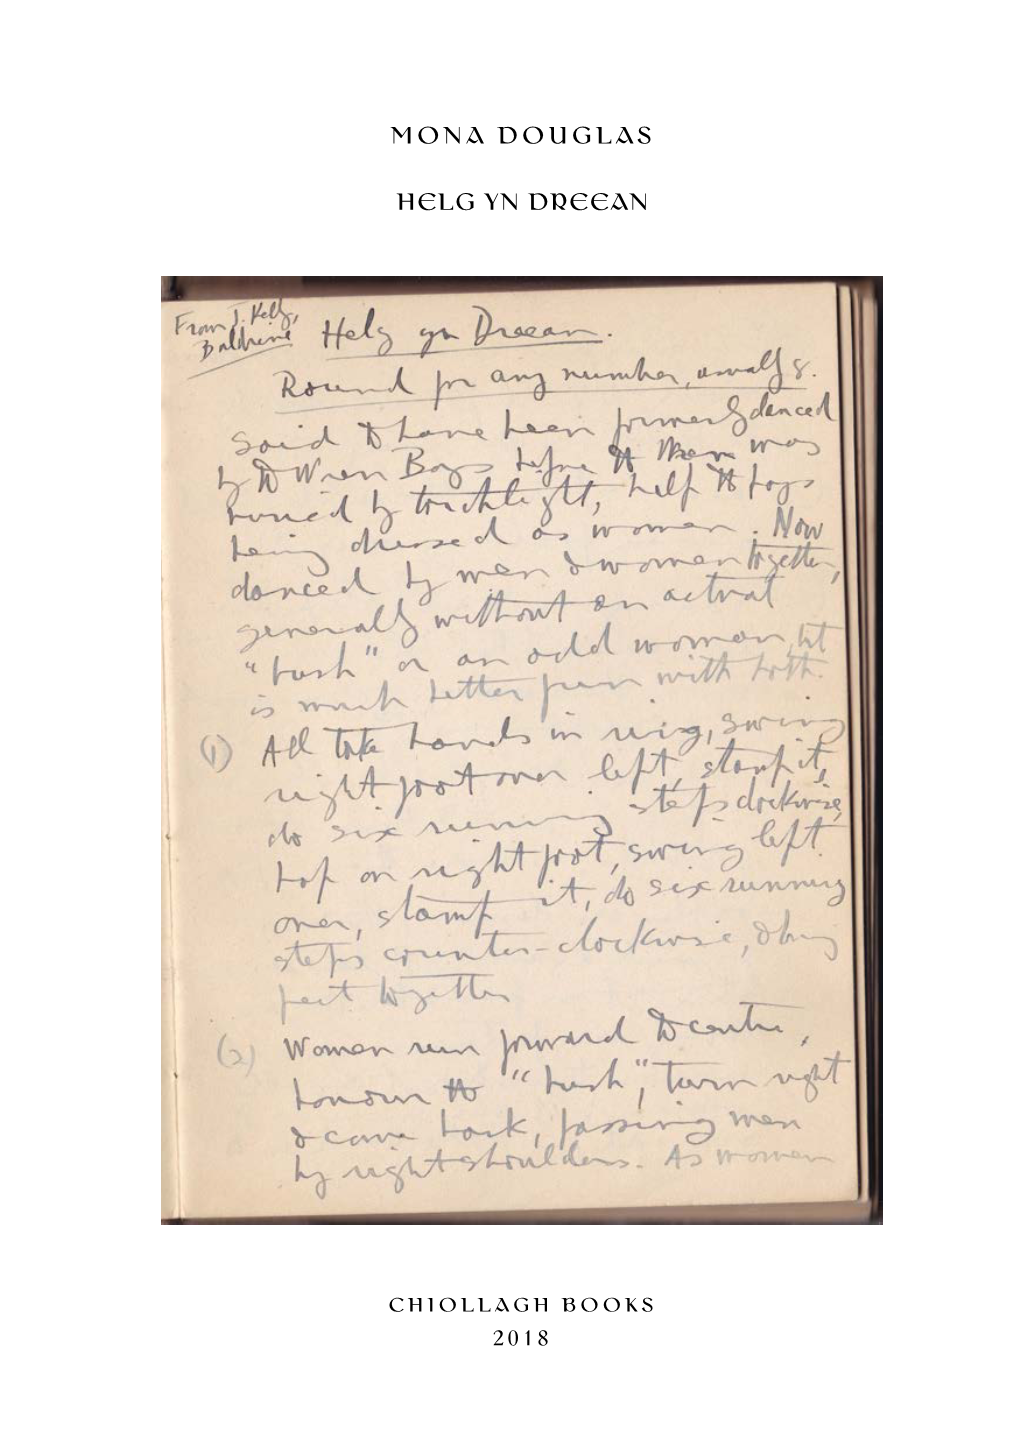 MONA DOUGLAS
HELG YN DREEAN
From J. Kelly,
Baldrine
Helg yn Dreean.
Round for any number, usually 8.
Said to have been formerly danced
by the Wren Boys before the Wren was
buried by torchlight, half the boys
being dressed as women. Now
danced by men & women together,
generally without an actual
"bush" or an odd woman, but
is much better fun with both.
(1) All take hands in ring, swing
right foot over left, stamp it,
do six running steps clockwise,
hop on right foot, swing left
over, stamp it, do six running
steps counter-clockwise, & bring
feet together
(2) Women run forward to centre,
honour the "bush", turn right
& come back, passing men
by right shoulders. As women
CHIOLLAGH BOOKS
2018